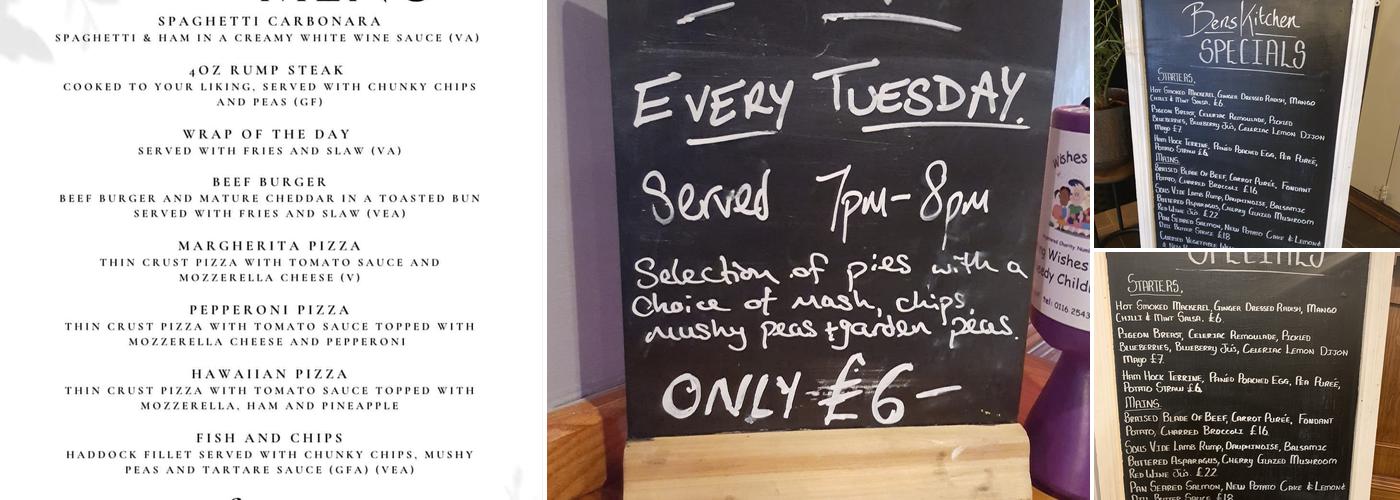 MENU
SPAGHETTI CARBONARA
SPAGHETTI & HAM IN A CREAMY WHITE WINE SAUCE (VA)
4OZ RUMP STEAK
COOKED TO YOUR LIKING, SERVED WITH CHUNKY CHIPS
AND PEAS (GF)
WRAP OF THE DAY
SERVED WITH FRIES AND SLAW (VA)
BEEF BURGER
BEEF BURGER AND MATURE CHEDDAR IN A TOASTED BUN
SERVED WITH FRIES AND SLAW (VEA)
MARGHERITA PIZZA
THIN CRUST PIZZA WITH TOMATO SAUCE AND
MOZZERELLA CHEESE (V)
PEPPERONI PIZZA
THIN CRUST PIZZA WITH TOMATO SAUCE TOPPED WITH
MOZZERELLA CHEESE AND PEPPERONI
HAWAIIAN PIZZA
THIN CRUST PIZZA WITH TOMATO SAUCE TOPPED WITH
MOZZERELLA, HAM AND PINEAPPLE
FISH AND CHIPS
HADDOCK FILLET SERVED WITH CHUNKY CHIPS, MUSHY
PEAS AND TARTARE SAUCE (GFA) (VEA)
EVERY TUESDAY.
Served 7pm-8pm
Selection of pies with a
Choice of mash, chips,
mushy peas + garden peas.
ONLY £6-
Wishes
Wishes
tel: 0116 2543
Bens Kitchen
SPECIALS
STARTERS,
HOT SMOKED MACKEREL, GINGER DRESSED RADISH, MANGO
CHILLI & MINT SALSA. £6.
PIGEON BREAST, CELERIAC REMOULADE, PICKLED
BLUEBERRIES, BLUEBERRY JUS, CELERIAC LEMON DIJON
MAYO £7
HAM HOCK TERRINE, PANÉD POACHED EGG, PEA PURÉE,
POTATO STRAW £6
MAINS.
BRAISED BLADE OF BEEF, CARROT PURÉE, FONDANT
POTATO, CHARRED BROCCOLI £16
SOUS VIDE LAMB RUMP, DAUPHINOISE, BALSAMIC
BUTTERED ASPARAGUS, CHERRY GLAZED MUSHROOM
RED WINE JUS. £22
PAN SEARED SALMON, NEW POTATO CAKE & LEMON &
DILL BUTTER SAUCE £18
SPECIALS
STARTERS,
HOT SMOKED MACKEREL, GINGER DRESSED RADISH, MANGO
CHILLI & MINT SALSA. £6.
PIGEON BREAST, CELERIAC REMOULADE, PICKLED
BLUEBERRIES, BLUEBERRY JUS, CELERIAC LEMON DIJON
MAYO £7
HAM HOCK TERRINE, PANÉD POACHED EGG, PEA PURÉE,
POTATO STRAW £6
MAINS.
BRAISED BLADE OF BEEF, CARROT PURÉE, FONDANT
POTATO, CHARRED BROCCOLI £16
SOUS VIDE LAMB RUMP, DAUPHINOISE, BALSAMIC
BUTTERED ASPARAGUS, CHERRY GLAZED MUSHROOM
RED WINE JUS. £22
PAN SEARED SALMON, NEW POTATO CAKE & LEMON &
DILL BUTTER SAUCE £18